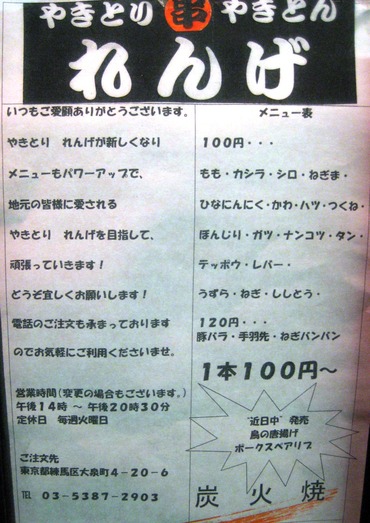 やきとり 串 やきとん
れんげ
いつもご愛顧ありがとうございます。
やきとり れんげが新しくなり
メニューもパワーアップで、
地元の皆様に愛される
やきとり れんげを目指して、
頑張っていきます!
どうぞ宜しくお願いします!
電話のご注文も承まっております
のでお気軽にご利用くださいませ。
営業時間(変更の場合もございます。)
午後14時 ～ 午後20時30分
定休日 毎週火曜日
ご注文先
東京都練馬区大泉町4-20-6
TEL 03-5387-2903
メニュー表
100円・・・
もも・カシラ・シロ・ねぎま・
ひなにんにく・かわ・ハツ・つくね・
ぼんじり・ガツ・ナンコツ・タン・
テッポウ・レバー・
うずら・ねぎ・ししとう・
120円・・・
豚バラ・手羽先・ねぎバンバン
1本100円～
"近日中" 発売
鳥の唐揚げ
ポークスペアリブ
炭火焼